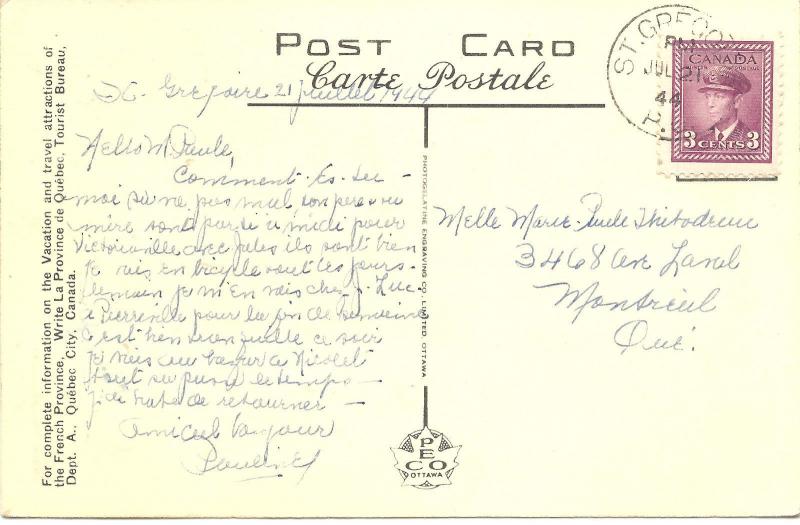 POST CARD
Carte Postale
St. Grégoire 21 juillet 1944
Hello M. Paule,
Comment Es-tu –
moi sa ne pas mal ton pere ou
mère sont parti a midi pour
Victoriaville avec Jules ils sont bien
Je vais en bicycle tout les jours.
Demain je m'en vais chez J. Luc
a Pierreville pour la fin de semaine
C'est bien tranquille ce soir
je vais au bazar a Nicolet
tout sa passe le temps –
j'ai hate de retourner –
Amical bonjour
Pauline
For complete information on the Vacation and travel attractions of
the French Province, Write La Province de Québec, Tourist Bureau,
Dept. A., Québec City, Canada.
PHOTOGELATINE ENGRAVING CO. LIMITED OTTAWA
PECO
OTTAWA
ST. GREGOI
PM
JUL 21
44
P.
CANADA
3 CENTS 3
Melle Marie-Paule Thibodeau
3468 Ave Laval
Montréal
Qué.